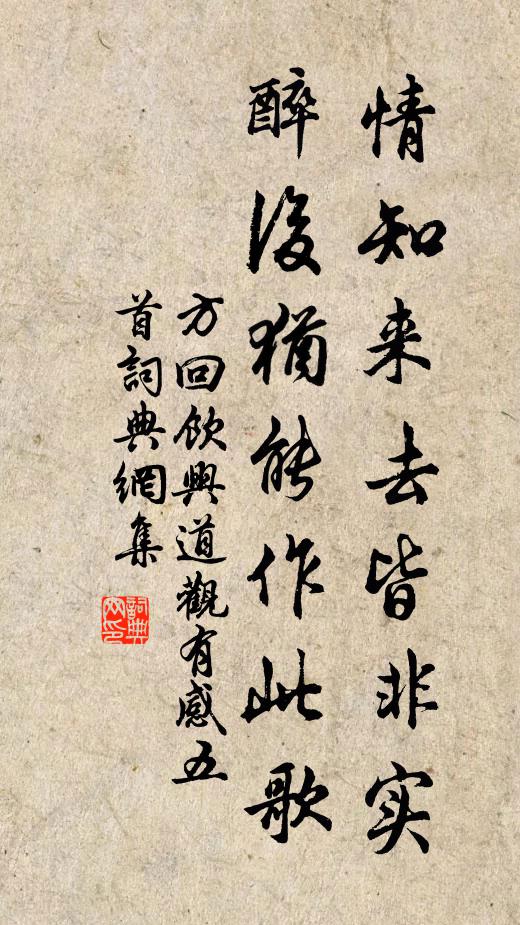 情知来去皆非实
醉後猶能作此歌
方回飲興道觀有感五
首詞典網集
詞典网印